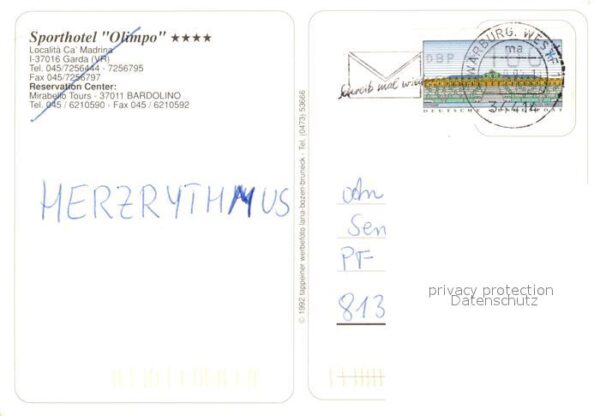 Sporthotel "Olimpo" ★★★★
Località Ca' Madrina
I-37016 Garda (VR)
Tel. 045/7256444 - 7256795
Fax 045/7256797
Reservation Center:
Mirabello Tours - 37011 BARDOLINO
Tel. 045 / 6210590 - Fax 045 / 6210592
HERZRYTHMUS
© 1992 tappeiner werbefoto lana-bozen-bruneck - Tel. (0473) 53666
Schreib mal wieder
WARBURG, WESTF 1
ma
34414
DBP
100
DEUTSCHE BUNDESPOST
An
Sen
PF
813
privacy protection
Datenschutz